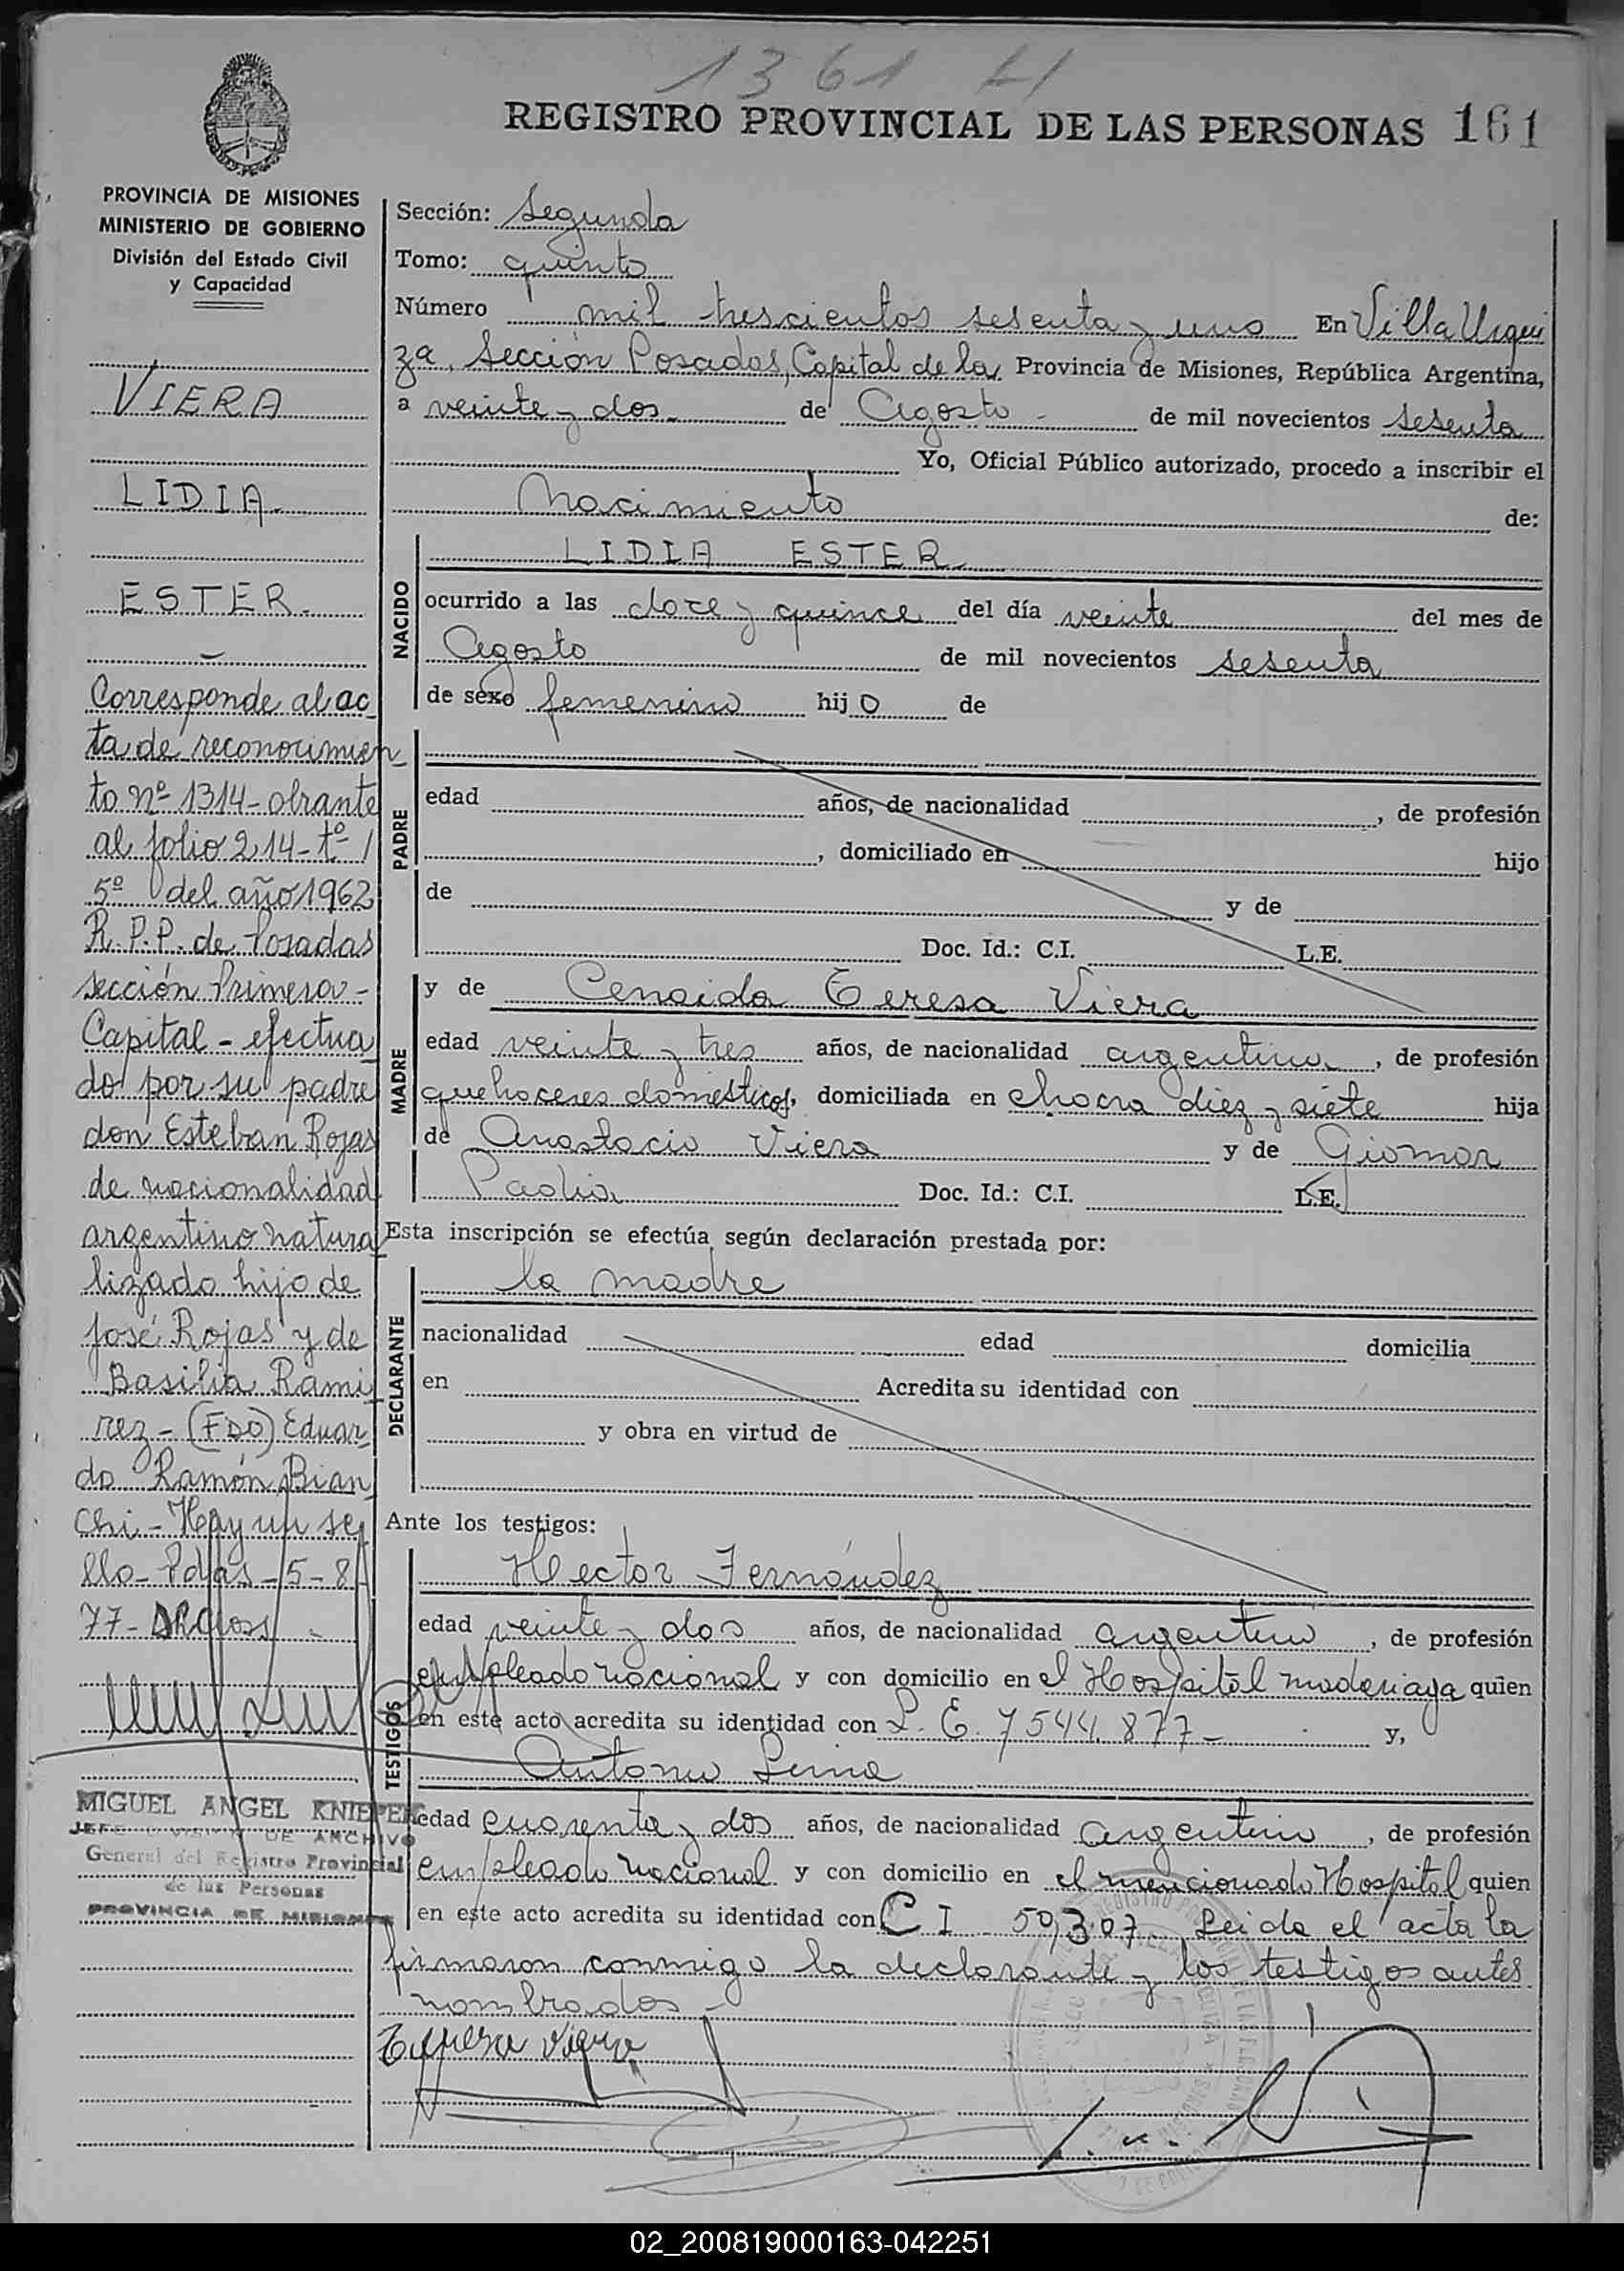 1361 H
REGISTRO PROVINCIAL DE LAS PERSONAS 161
PROVINCIA DE MISIONES
MINISTERIO DE GOBIERNO
División del Estado Civil
y Capacidad
VIERA
LIDIA
ESTER.
Corresponde al ac
ta de reconocimien
to nº 1314 - obrante
al folio 214 - tº
5º del año 1962
R.P.P. de Posadas
sección Primera -
Capital - efectua
do por su padre
don Esteban Rojas
de nacionalidad
argentino natura
lizado hijo de
José Rojas y de
Basilia Rami
rez - (FDO) Eduar
do Ramón Bian
chi - Hay un se
llo - Pdas - 5 - 8
77 -
MIGUEL ANGEL KNIEPER
JEFE DIVISION DE ARCHIVO
General del Registro Provincial
de las Personas
PROVINCIA DE MISIONES
Sección: Segunda
Tomo: quinto
Número mil trescientos sesenta y uno En Villa Urqui
za, Sección Posadas, Capital de la Provincia de Misiones, República Argentina,
a veinte y dos de Agosto - de mil novecientos sesenta
Yo, Oficial Público autorizado, procedo a inscribir el
Nacimiento de:
NACIDO
LIDIA ESTER
ocurrido a las doce y quince del día veinte del mes de
Agosto de mil novecientos sesenta
de sexo femenino hijo de
PADRE
edad años, de nacionalidad , de profesión
, domiciliado en hijo
de y de
Doc. Id.: C.I. L.E.
MADRE
y de Cenaida Teresa Viera
edad veinte y tres años, de nacionalidad argentina, de profesión
quehaceres domésticos, domiciliada en chacra diez y siete hija
de Anastacio Viera y de Giomar
Padia Doc. Id.: C.I. L.E.
Esta inscripción se efectúa según declaración prestada por:
DECLARANTE
la madre
nacionalidad edad domicilia
en Acredita su identidad con
y obra en virtud de
Ante los testigos:
TESTIGOS
Hector Fernández
edad veinte y dos años, de nacionalidad argentino, de profesión
empleado nacional y con domicilio en el Hospital madariaga quien
en este acto acredita su identidad con L.E. 7544.877 - y,
Antonio
edad cuarenta y dos años, de nacionalidad argentino, de profesión
empleado nacional y con domicilio en el mencionado Hospital quien
en este acto acredita su identidad con C I 50307. Leida el acta la
firmaron conmigo la declarante y los testigos antes
nombrados -
02_200819000163-042251